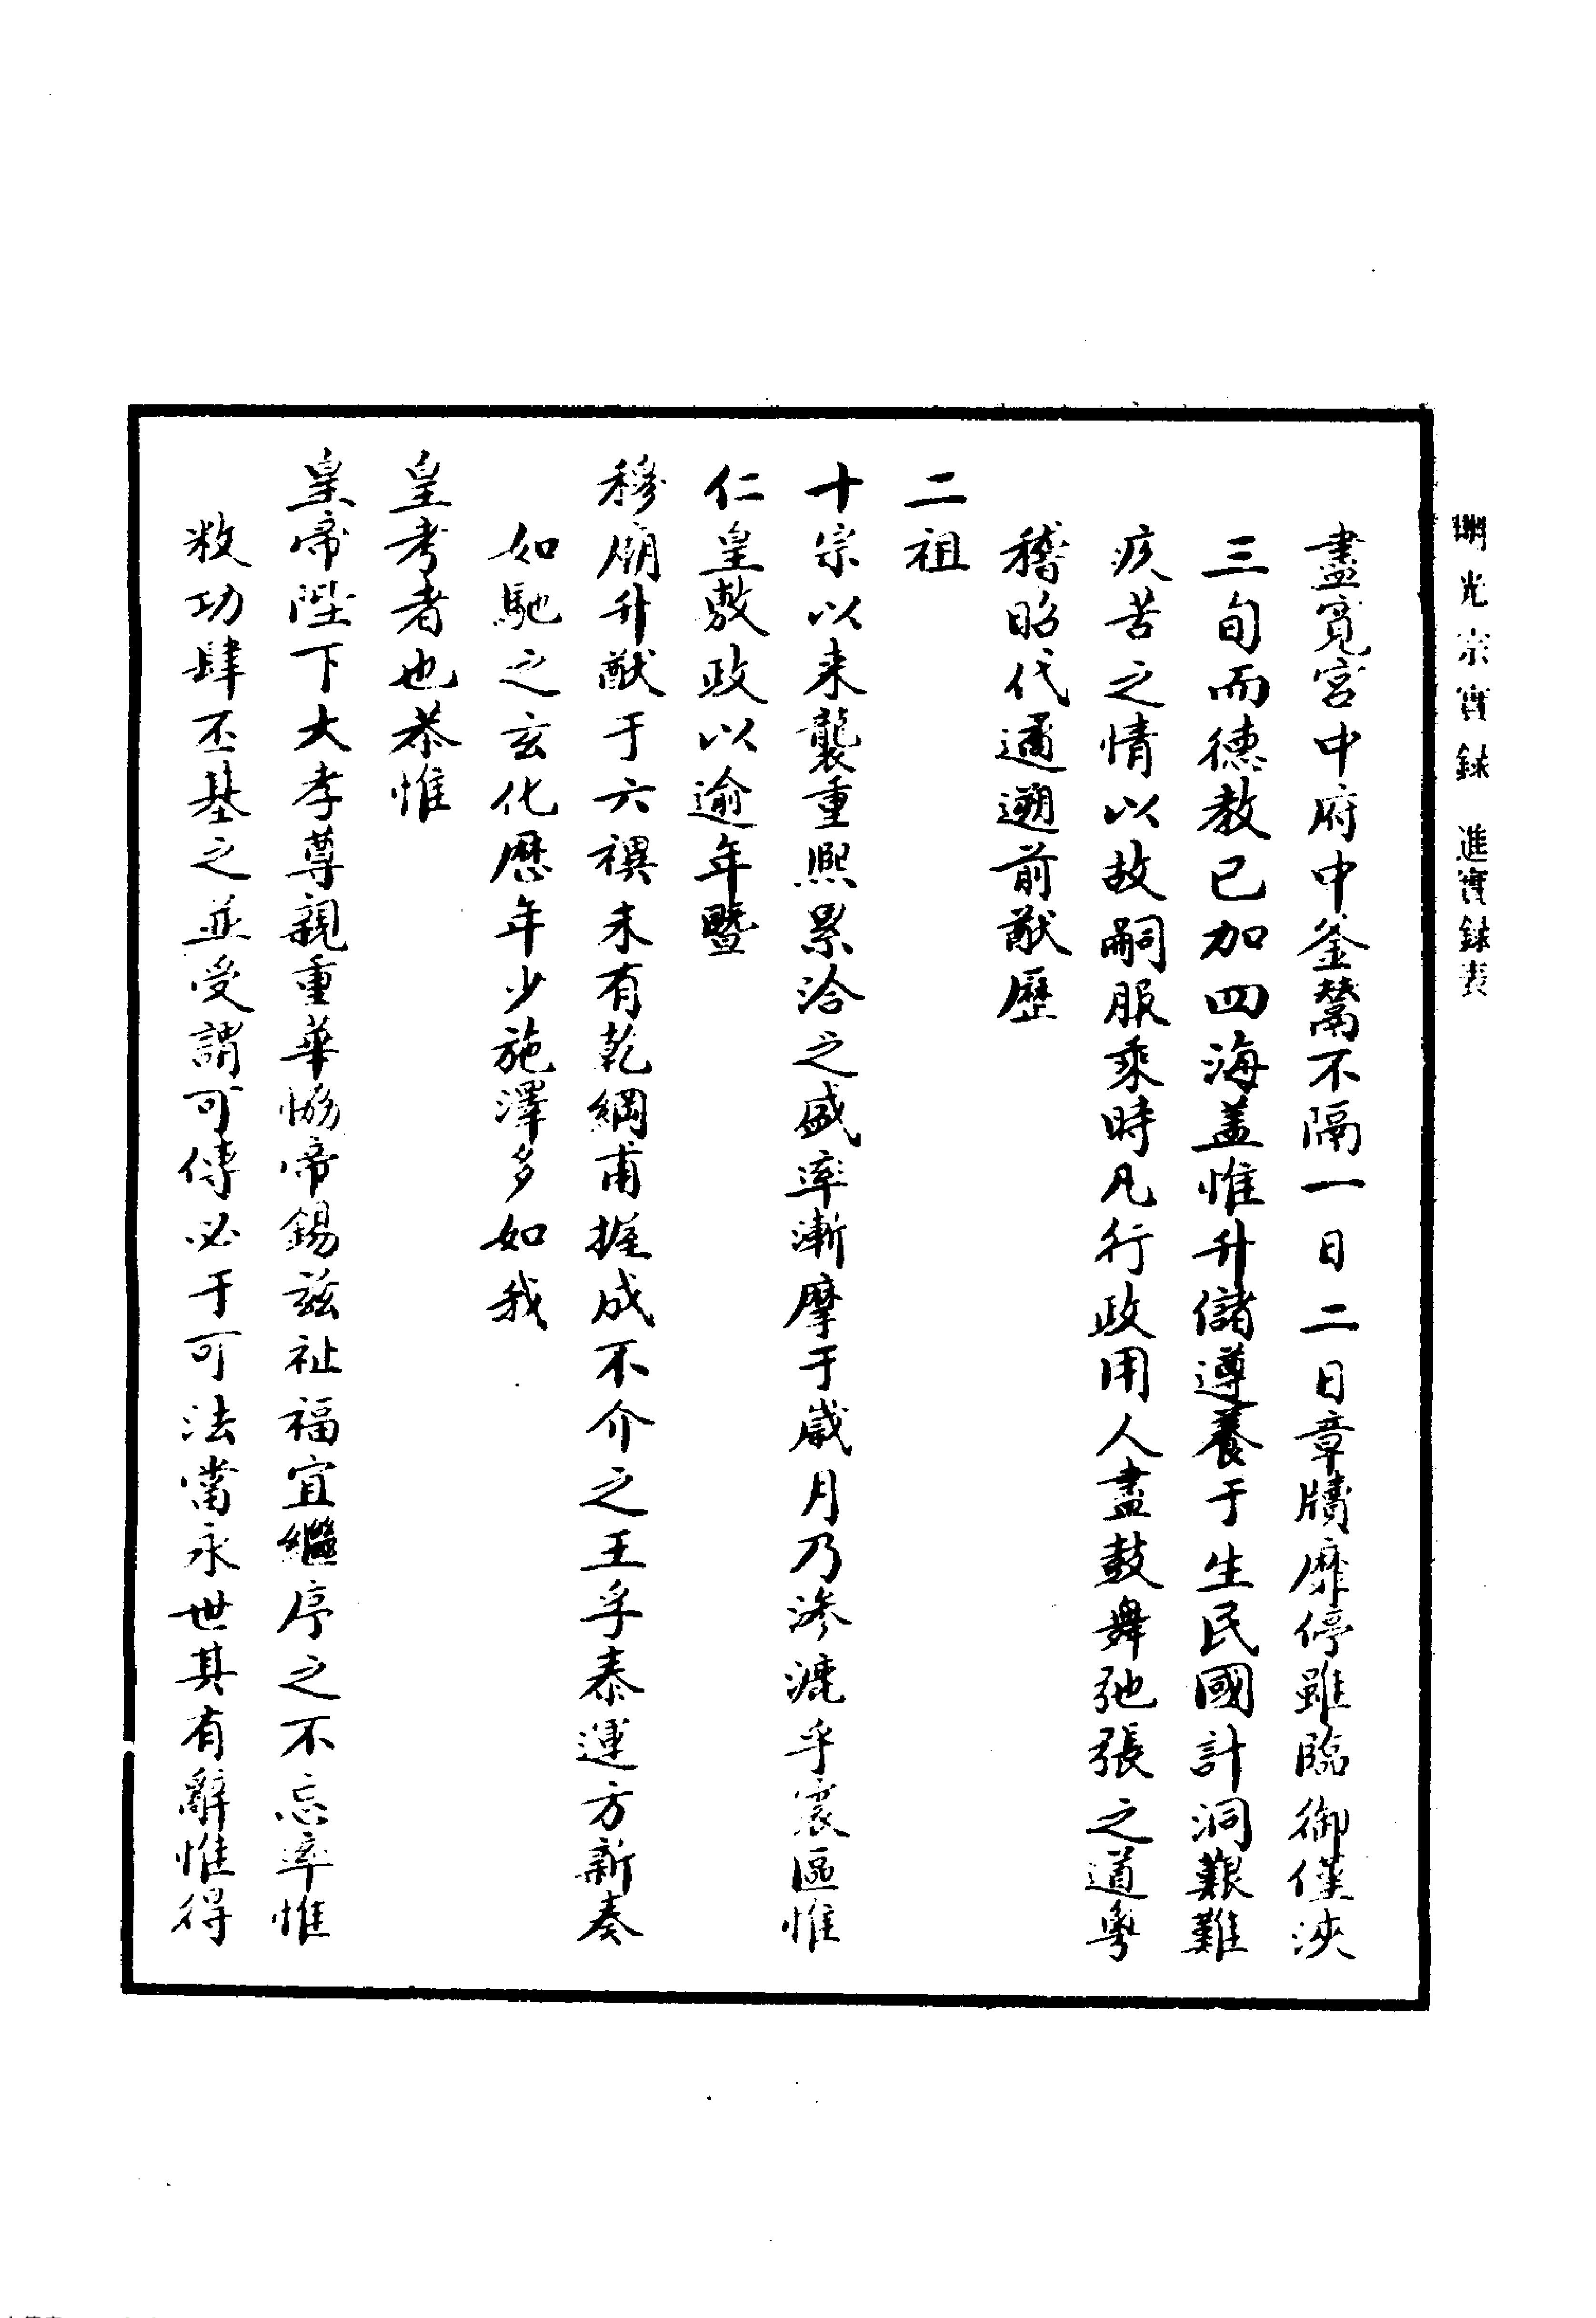 明光宗實錄 進實錄表
盡寬宮中府中釜鬵不隔一日二日章牘靡停雖臨御僅浹
三旬而德教已加四海盖惟升儲遵養于生民國計洞艱難
疾苦之情以故嗣服乘時凡行政用人盡鼓舞弛張之道粤
稽昭代遹遡前猷歷
二祖
十宗以来襲重熙累洽之盛率漸摩于歲月乃滲漉乎寰區惟
仁皇敷政以逾年暨
穆廟升猷于六禩未有乾綱甫握成不介之王孚泰運方新奏
如馳之玄化歷年少施澤多如我
皇考者也恭惟
皇帝陛下大孝尊親重華協帝錫茲祉福宜繼序之不忘率惟
敉功肆丕基之並受謂可傳必于可法當永世其有辭惟得